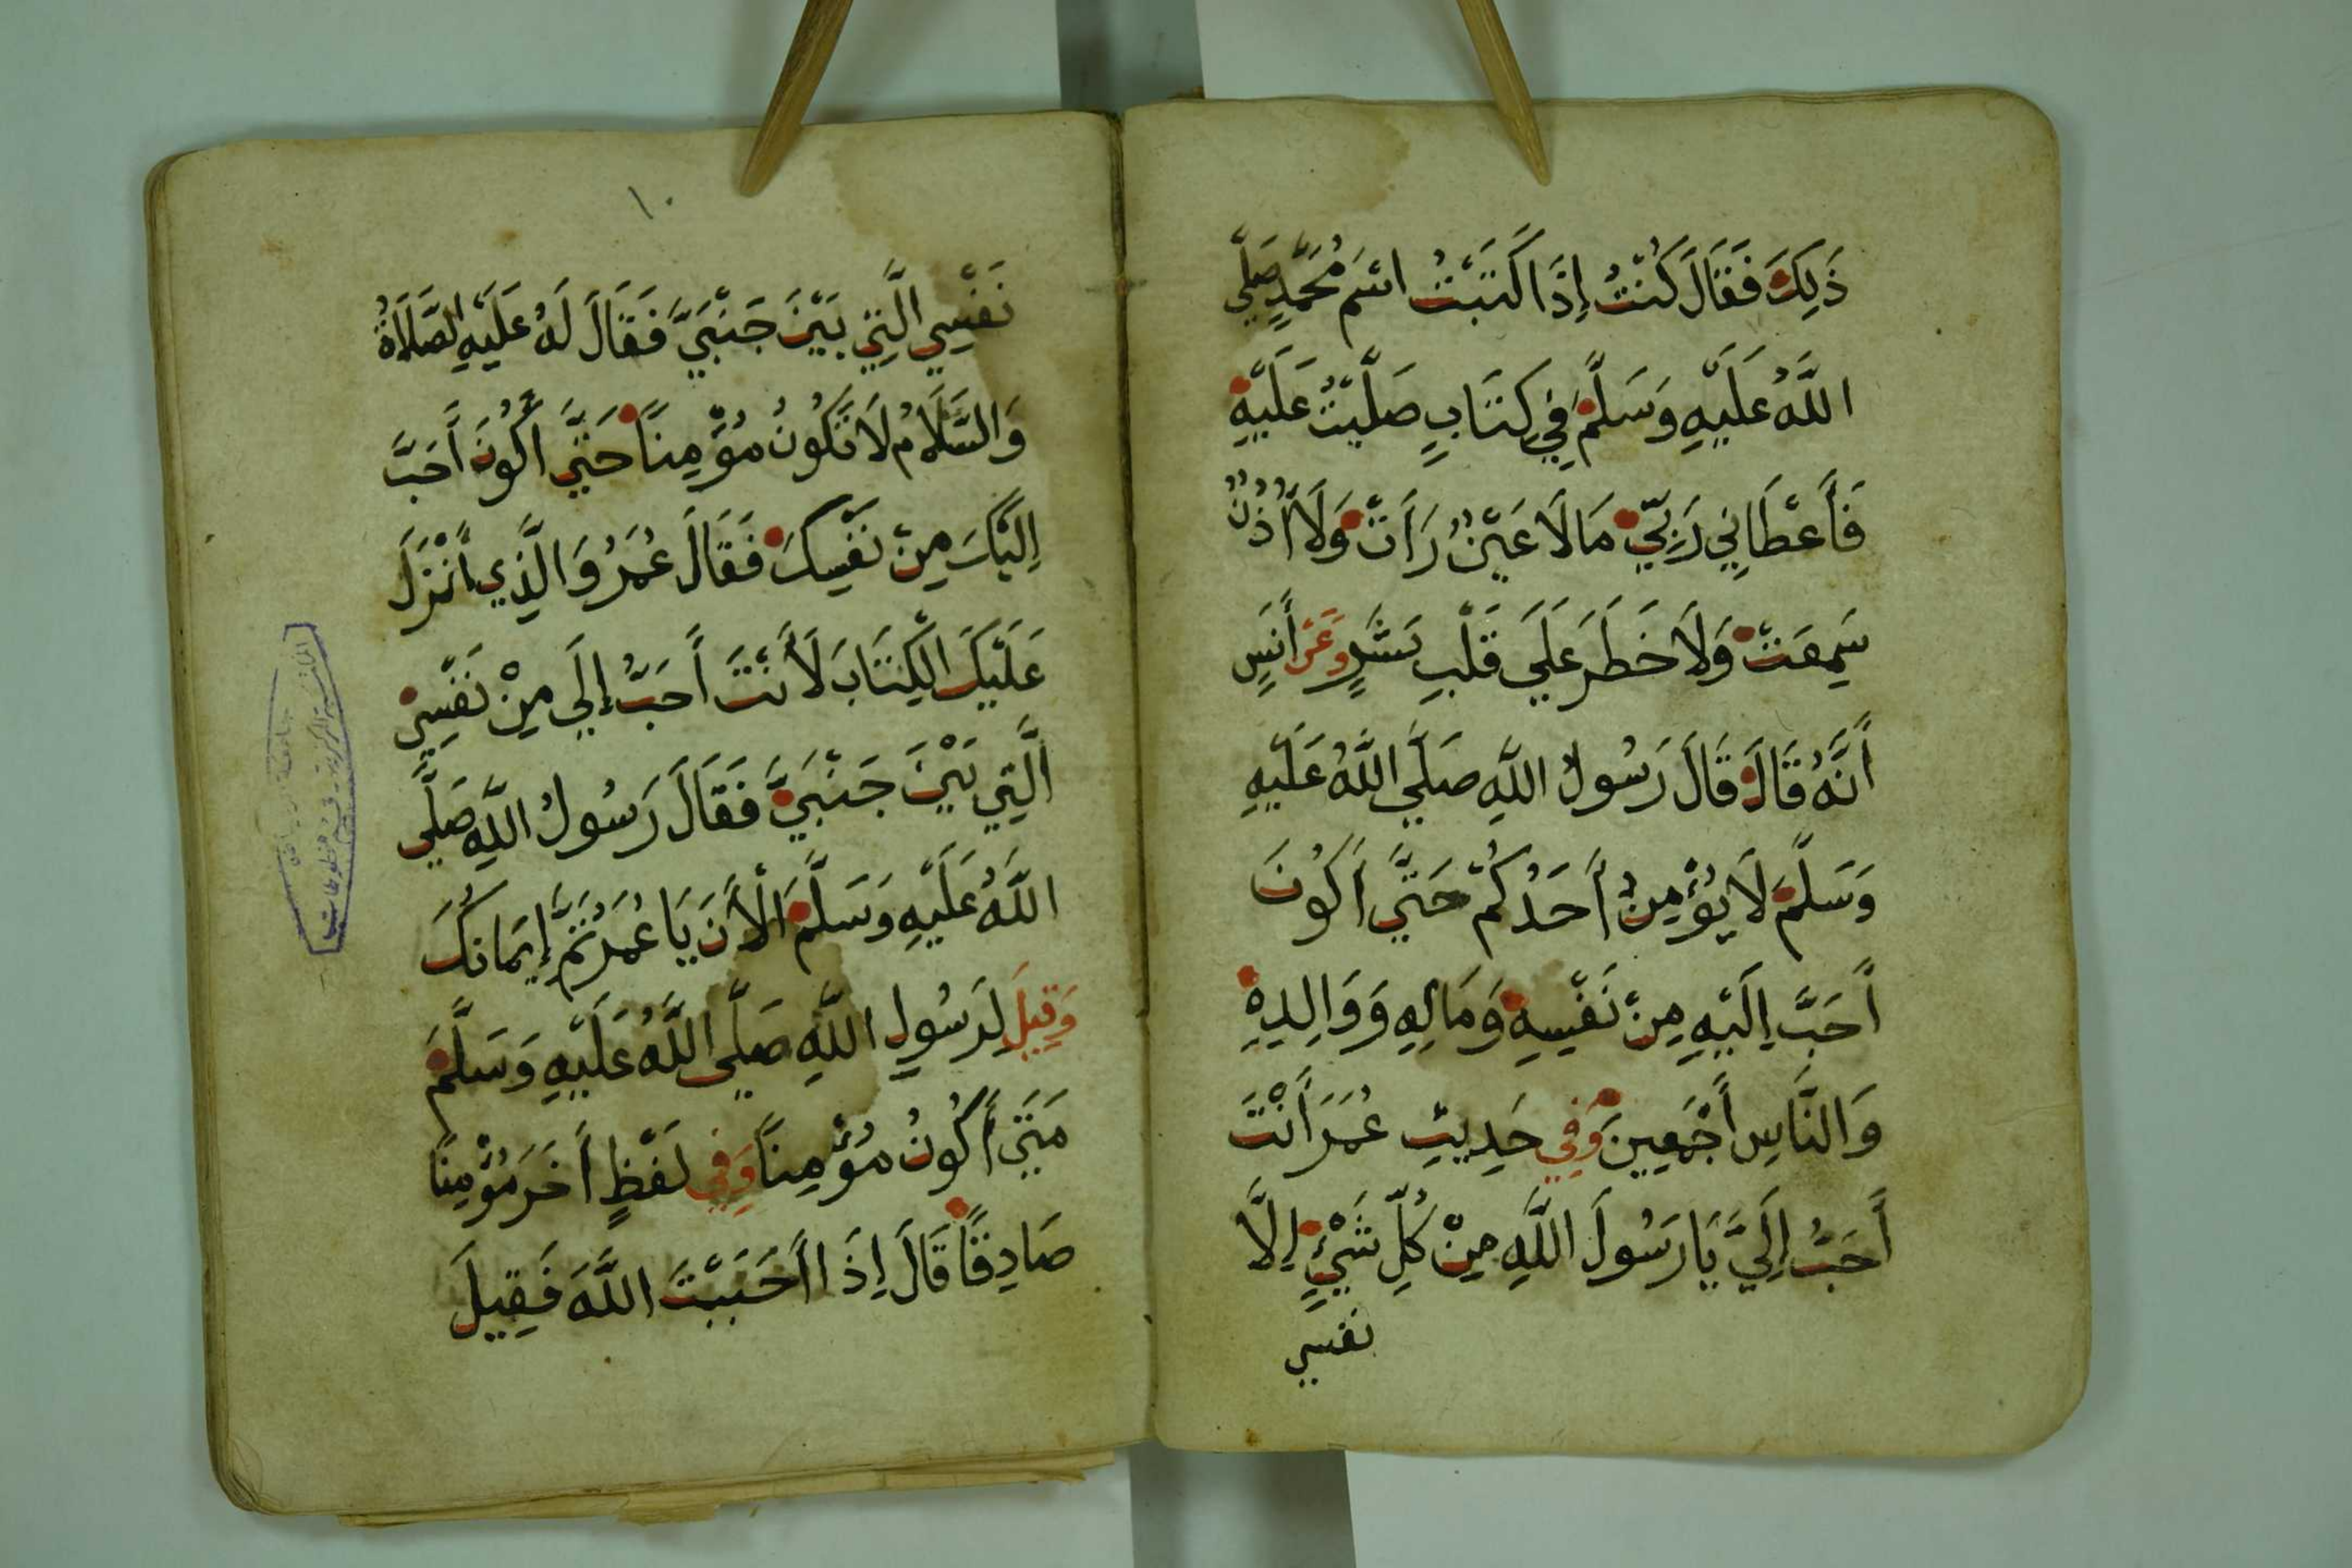 ذَلِكَ فَقَالَ كُنْتُ إِذَا كَتَبْتُ اسْمَ مُحَمَّدٍ صَلَّي
اللَّهُ عَلَيْهِ وَسَلَّمَ فِي كِتَابٍ صَلَّيْتُ عَلَيْهِ
فَأَعْطَانِي رَبِّي مَا لَا عَيْنٌ رَأَتْ وَلَا أُذُنٌ
سَمِعَتْ وَلَا خَطَرَ عَلَي قَلْبِ بَشَرٍ وَعَنْ أَنَسٍ
أَنَّهُ قَالَ قَالَ رَسُولُ اللَّهِ صَلَّي اللَّهُ عَلَيْهِ
وَسَلَّمَ لَا يُؤْمِنُ أَحَدُكُمْ حَتَّي أَكُونَ
أَحَبَّ إِلَيْهِ مِنْ نَفْسِهِ وَمَالِهِ وَوَالِدِهِ
وَالنَّاسِ أَجْمَعِينَ وَفِي حَدِيثِ عُمَرَ أَنْتَ
أَحَبُّ إِلَيَّ يَا رَسُولَ اللَّهِ مِنْ كُلِّ شَيْءٍ إِلَّا
نفسي
١٠
نَفْسِي الَّتِي بَيْنَ جَنْبَيَّ فَقَالَ لَهُ عَلَيْهِ الصَّلَاةُ
وَالسَّلَامُ لَا تَكُونُ مُؤْمِنًا حَتَّي أَكُونَ أَحَبَّ
إِلَيْكَ مِنْ نَفْسِكَ فَقَالَ عُمَرُ وَالَّذِي أَنْزَلَ
عَلَيْكَ الْكِتَابَ لَأَنْتَ أَحَبُّ إِلَي مِنْ نَفْسِي
الَّتِي بَيْنَ جَنْبَيَّ فَقَالَ رَسُولُ اللَّهِ صَلَّي
اللَّهُ عَلَيْهِ وَسَلَّمَ الْأَنَ يَا عُمَرُ تَمَّ إِيمَانُكَ
وَقِيلَ لِرَسُولِ اللَّهِ صَلَّي اللَّهُ عَلَيْهِ وَسَلَّمَ
مَتَي أَكُونُ مُؤْمِنًا وَفِي لَفْظٍ أَخَرَ مُؤْمِنًا
صَادِقًا قَالَ إِذَا أَحْبَبْتَ اللَّهَ فَقِيلَ